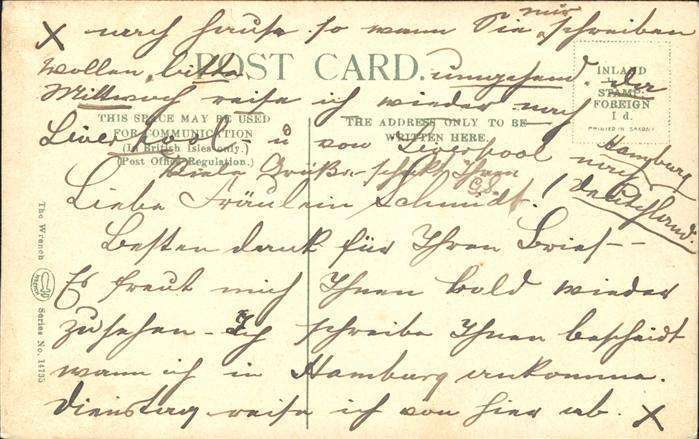 X nach hause so wann Sie nur schreiben
wollen, bitte umgehend. da
Mittwoch reise ich wieder nach
Liverpool - u von Liverpool nach
Hamburg
Deutschland.
Viele Grüße schickt Ihnen
C.S.
Liebe Fräulein Schmidt!
Besten dank für Ihren Brief -
Es freut mich Ihnen bald wieder
zu sehen - Ich schreibe Ihnen bescheidt
wann ich in Hamburg ankomme.
Dienstag reise ich von hier ab. X
POST CARD.
THIS SPACE MAY BE USED
FOR COMMUNICATION
(In British Isles only.)
(Post Office Regulation.)
THE ADDRESS ONLY TO BE
WRITTEN HERE.
INLAND
STAMP
FOREIGN
1d.
PRINTED IN SAXONY
The Wrench
Series No. 14735